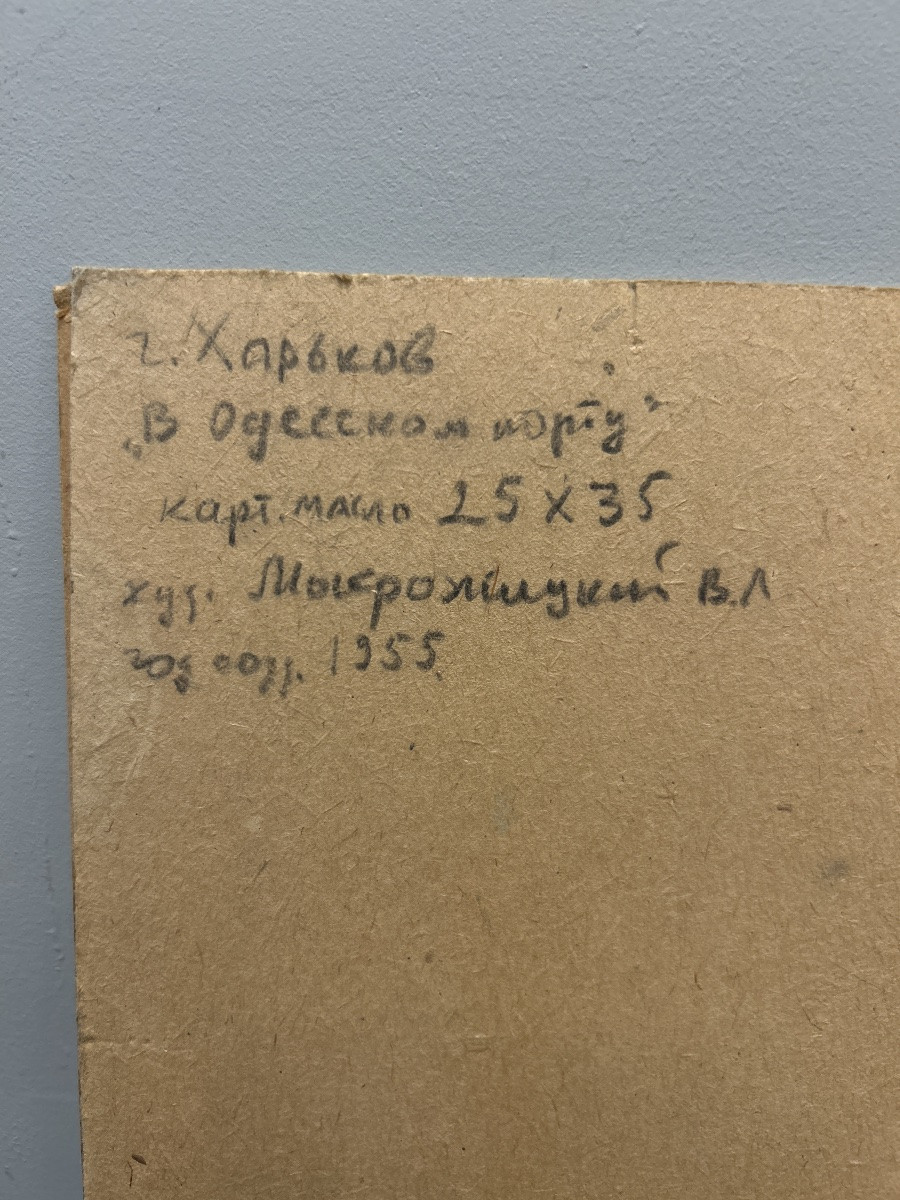 г. Харьков
„В Одесском порту"
карт. масло 25 х 35
худ. Мокрожицкий В.Л
год созд. 1955.